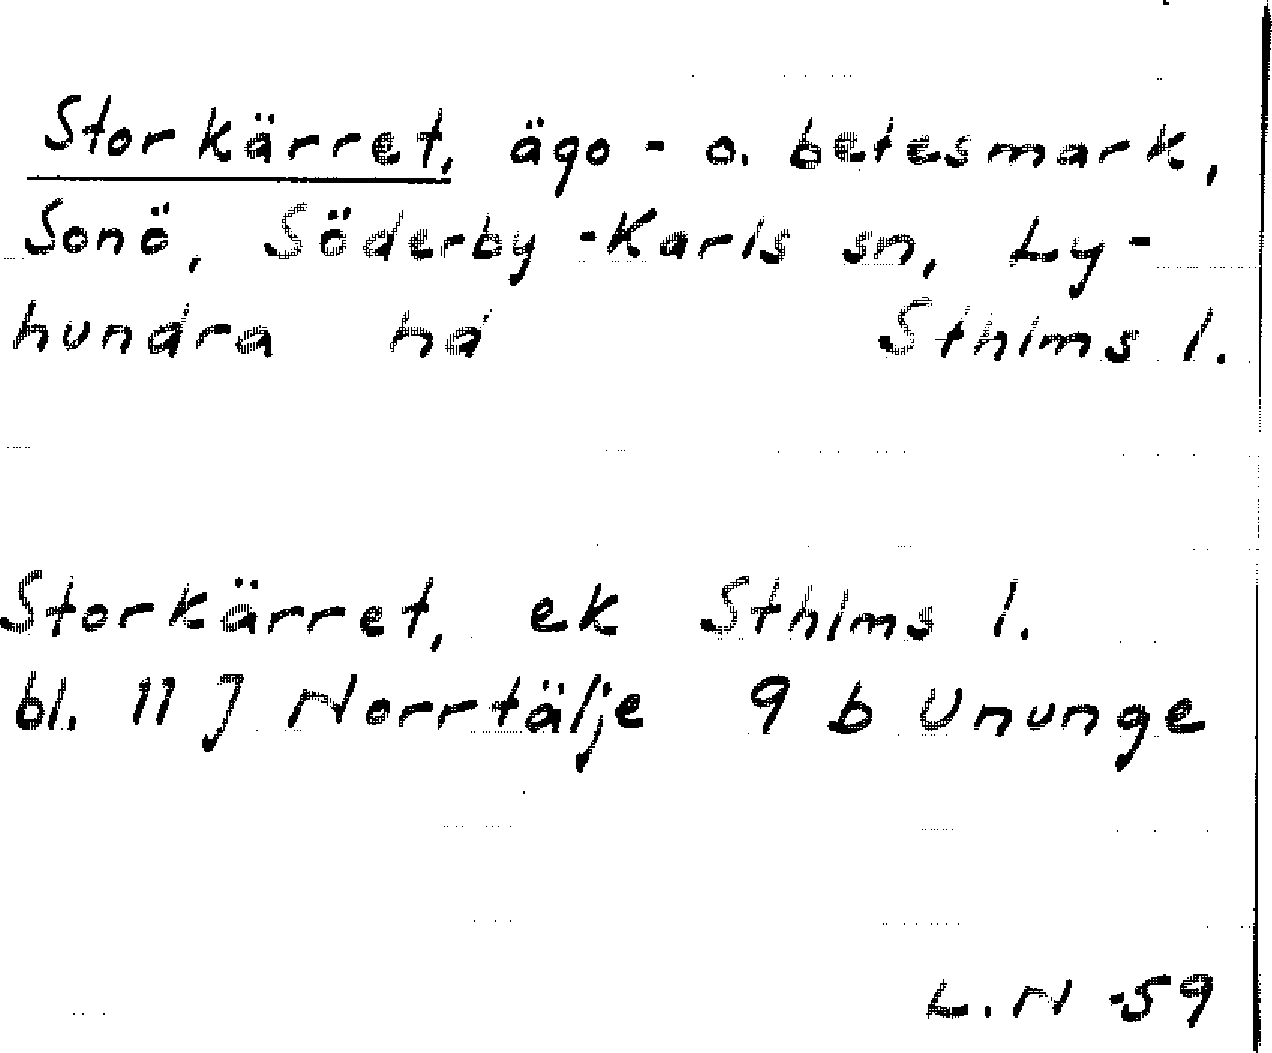 Storkärret, ägo- o. betesmark,
Sonö, Söderby-Karls sn, Ly-
hundra hd Sthlms l.
Storkärret, ek Sthlms l.
bl. 11 J Norrtälje 9 b Ununge
L. N -59